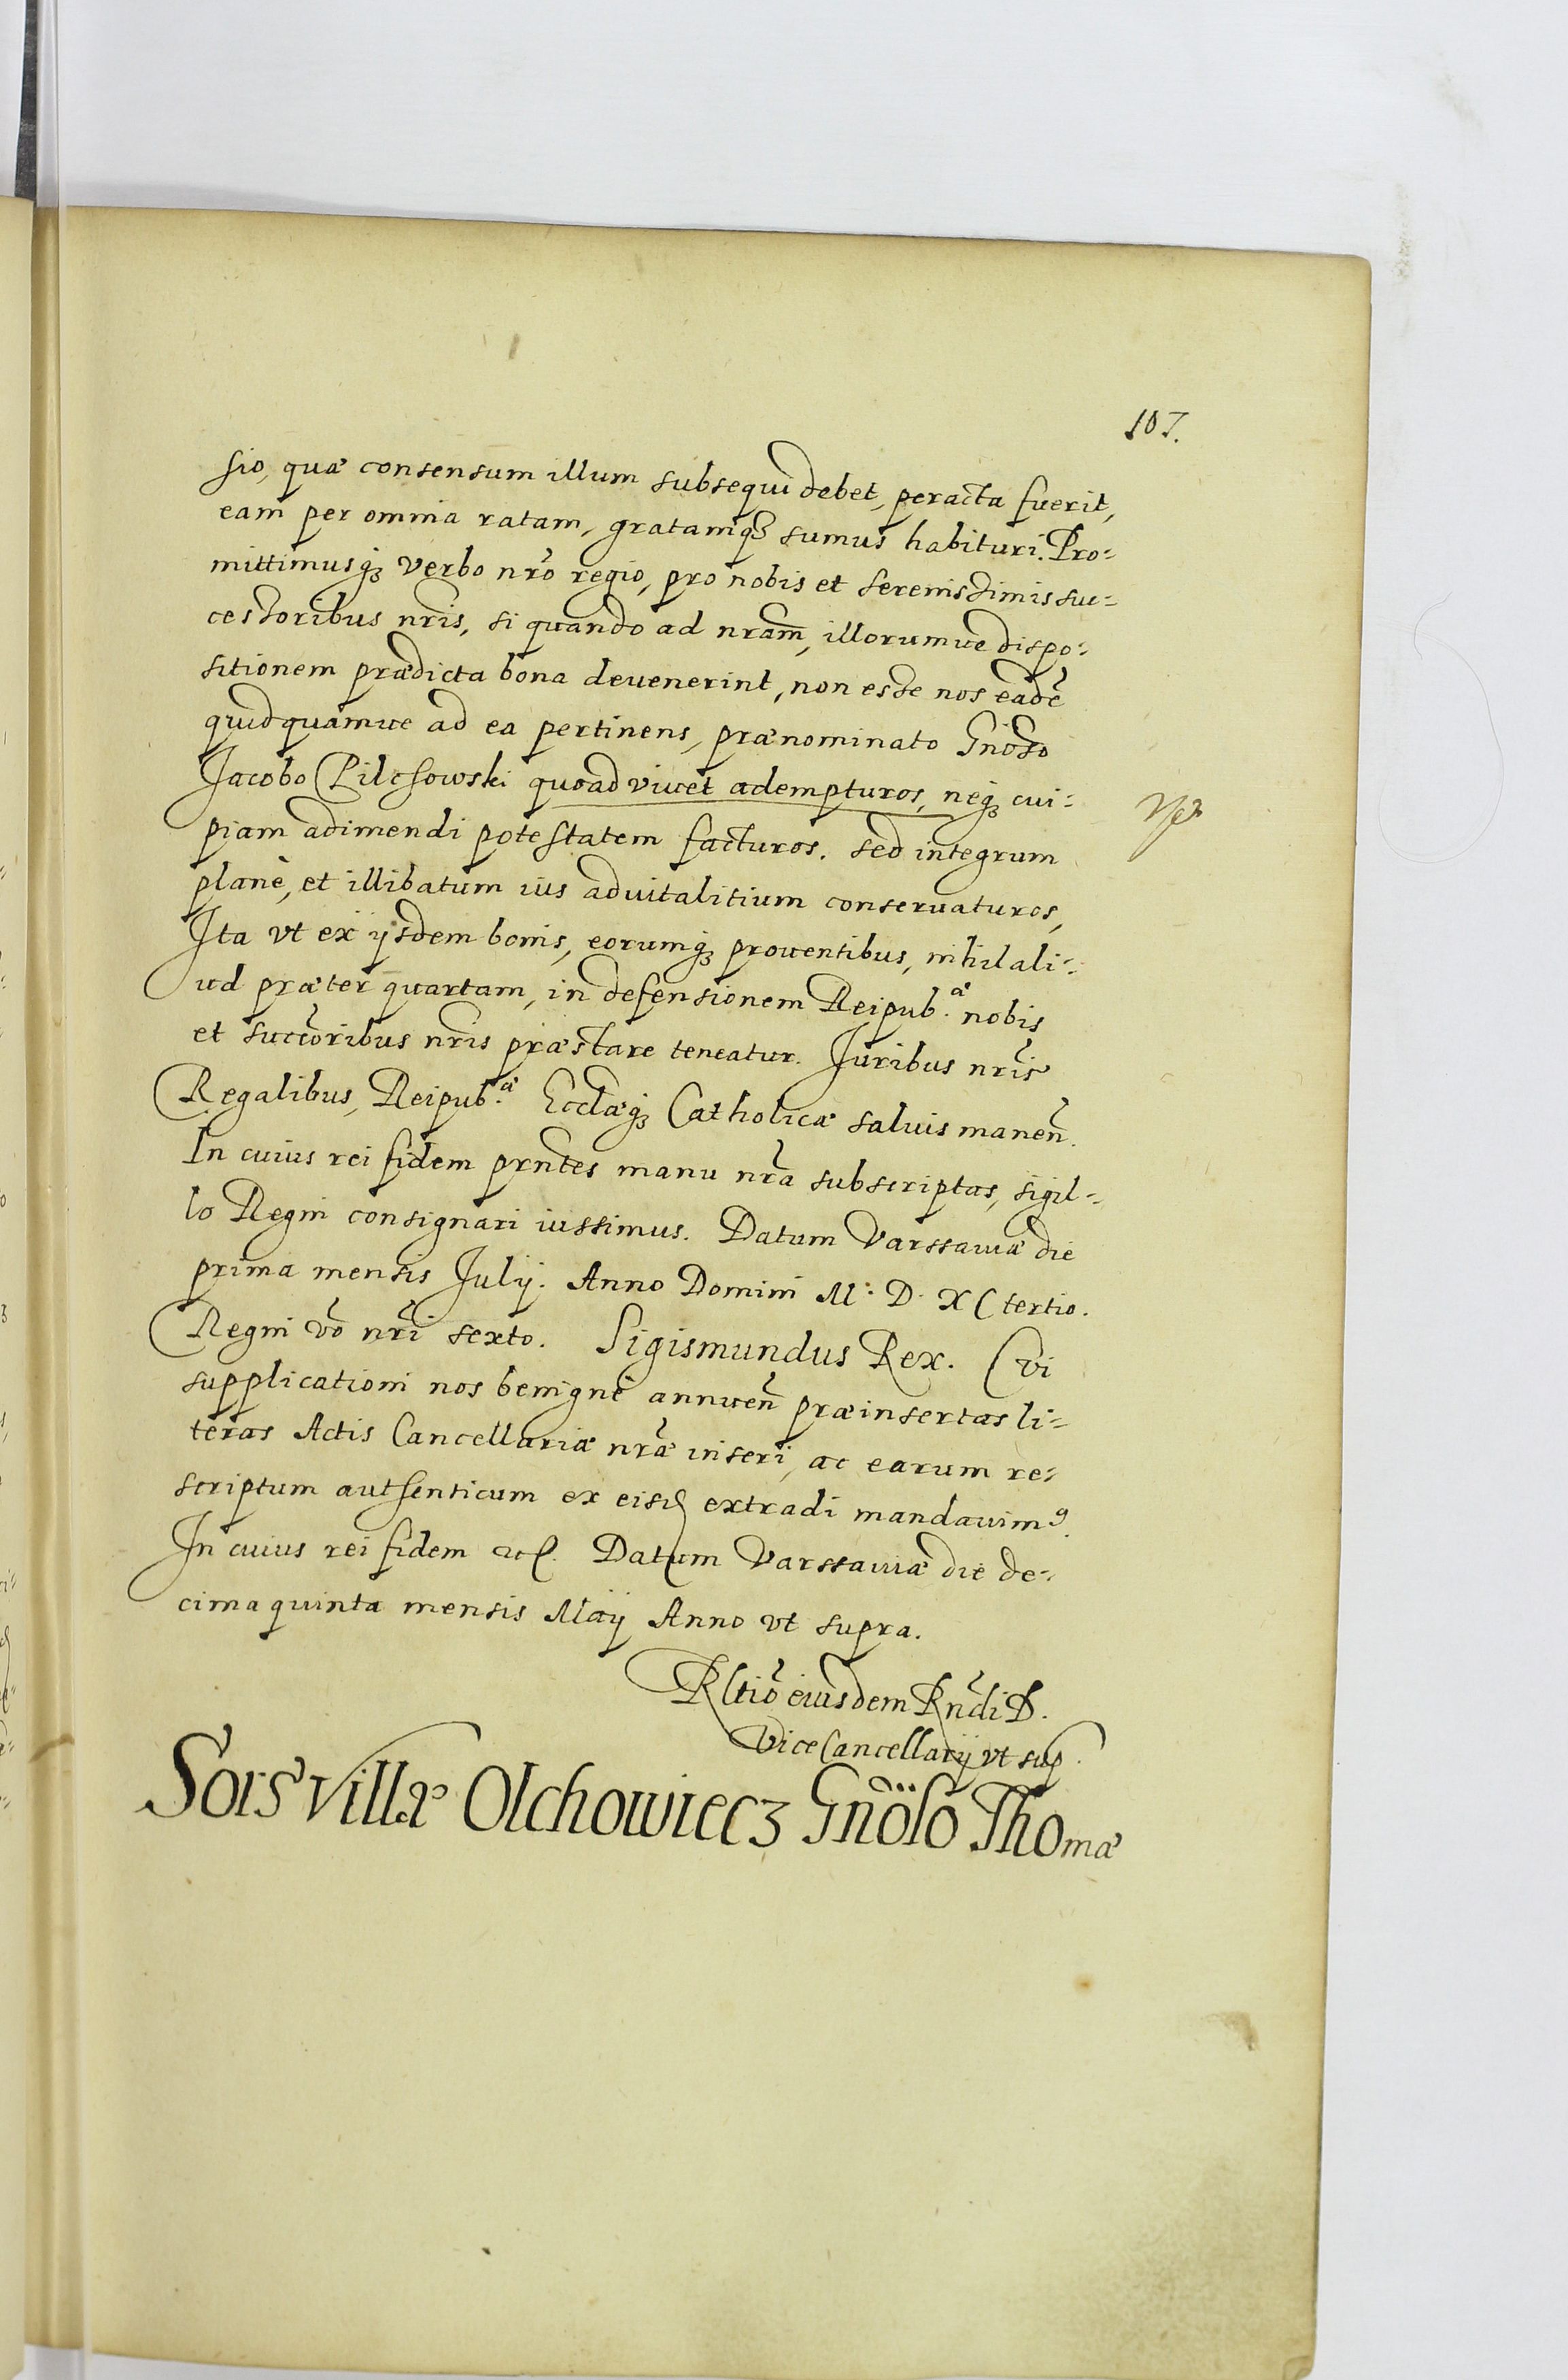 107.
sio, quæ consensum illum subsequi debet, peracta fuerit,
eam per omnia ratam, gratamq3 sumus habituri. Pro:
mittimusq3 verbo nr̃o regio, pro nobis et serenissimis suc:
cessoribus nr̃is, si quando ad nr̃am, illorumue dispo:
sitionem prædicta bona deuenerint, non esse nos eadẽ
quidquamue ad ea pertinens, prænominato Gnõso
Jacobo Pilchowski quoad viuet adempturos, neq3 cui:
piam adimendi potestatem facturos. sed integrum
planè, et illibatum ius aduitalitium conseruaturos,
Ita vt ex ijsdem bonis, eorumq3 prouentibus, nihil ali:
ud præter quartam, in defensionem Reipub.æ nobis
et succõribus nr̃is præstare teneatur. Juribus nr̃is
Regalibus, Reipub.æ Ecclæq3 Catholicæ saluis manen̄.
In cuius rei fidem prñtes manu nr̃a subscriptas, sigil:
lo Regni consignari iussimus. Datum Varssauiæ die
prima mensis Julij. Anno Domini M: D. XC tertio.
Regni võ nr̃i sexto. Sigismundus Rex. Cui
supplicationi nos benignè annuen̄ præinsertas li:
teras Actis Cancellariæ nr̃æ inseri, ac earum re:
scriptum authenticum ex eisd extradi mandauim9.
In cuius rei fidem etc. Datum Varssauiæ die de:
cima quinta mensis Maij Anno vt supra.
Rltiõ eiusdem Rñdi D.
ViceCancellarij vt sup.
Sors villæ Olchowiecz Gnõso Thomæ